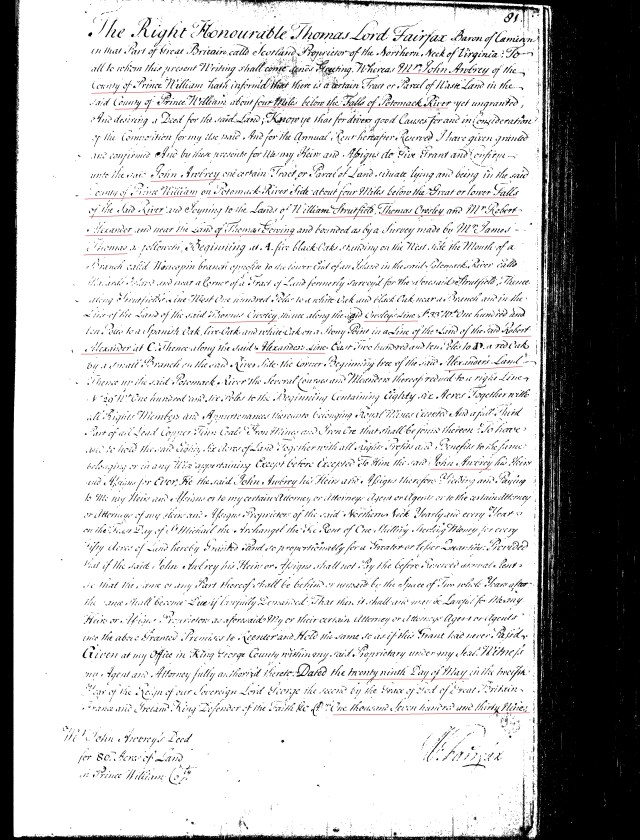 81.
The Right Honourable Thomas Lord Fairfax Baron of Cameron
in that Part of Great Britain calld Scotland Proprietor of the Northern Neck of Virginia: To
all to whom this present Writing shall come sends Greeting Whereas Mr. John Awbrey of the
County of Prince William hath informd that there is a certain Tract or Parcel of Waste Land in the
said County of Prince William about four Miles below the Falls of Potomack River yet ungranted
And desiring a Deed for the said Land; Know ye that for divers good Causes for and in Consideration
of the Composition for my Use paid And for the Annual Rent hereafter Reserved I have given granted
and confirmed And by these presents for Me my Heirs and Assigns do Give Grant and Confirm
unto the said John Awbrey one certain Tract or Parcel of Land situate lying and being in the said
County of Prince William on Potomack River Side about four Miles below the Great or lower Falls
of the said River and Joyning to the Lands of William Strutfield, Thomas Owsley and Mr. Robert
Alexander and near the Land of Thomas Going and bounded as by a Survey made by Mr. James
Thomas as followeth, Beginning at A. five black Oaks standing on the West Side the Mouth of a
Branch calld Wancapin branch opposite to the lower End of an Island in the said Potomack River calld
Island and near a Corner of a Tract of Land formerly surveyd for the aforesaid Strutfield, Thence
along Strutfields Line West One hundred Poles to a white Oak and black Oak near a Branch and in the
Line of the Land of the said Owsley thence along the said Owsleys Line One hundred and
ten Poles to a Spanish Oak live Oak and white Oak on a Stony Point in a Line of the Land of the said Robert
Alexander at C. Thence along the said Alexanders Line East Two hundred and ten Poles to D. a red Oak
by a small Branch on the said River Side the Corner Beginning tree of the said Alexanders Land
Thence up the said Potomack River the several Courses and Meanders thereof reduced to a right Line
N° 29 W° One hundred and Six Poles to the Beginning Containing Eighty six Acres Together with
all Rights Members and Appurtenances thereunto belonging Royal Mines Excepted And a full Third
Part of all Lead Copper Tinn Coals Iron Mines and Iron Ore that shall be found thereon To have
and to hold the said Eighty six Acres of Land Together with all Rights Profits and Benefits to the same
belonging or in any Wise appertaining Except before Excepted To Him the said John Awbrey his Heirs
and Assigns for Ever, He the said John Awbry his Heirs and Assigns therefore Yielding and Paying
to Me my Heirs and Assigns or to my certain Attorney or Attorneys Agent or Agents or to the certain Attorney
or Attorneys of my Heirs and Assigns Proprietors of the said Northern Neck Yearly and every Year
on the Feast Day of St. Michael the Archangel the Fee Rent of One Shilling Sterling Money for every
Fifty Acres of Land hereby Granted And so proportionally for a Greater or lesser Quantity Provided
that if the said John Awbrey his Heirs or Assigns shall not Pay the before Reserved annual Rent
so that the same or any Part thereof shall be behind or unpaid by the Space of Two whole Years after
the same shall become Due if Lawfully Demanded That then it shall and may be Lawful for Me my
Heirs or Assigns Proprietors as aforesaid My or their certain Attorney or Attorneys Agent or Agents
into the above Granted Premises to Reenter and Hold the same so as if this Grant had never Passd
Given at my Office in King George County within my said Proprietary under my Seal Witness
my Agent and Attorney fully authorized thereto. Dated the twenty ninth Day of May in the twelfth
Year of the Reign of our Sovereign Lord George the second by the Grace of God of Great Britain
France and Ireland King Defender of the Faith &c One thousand Seven hundred and thirty Nine
Mr. John Awbrey's Deed
for 86 Acres of Land
in Prince William Coty
W. Fairfax